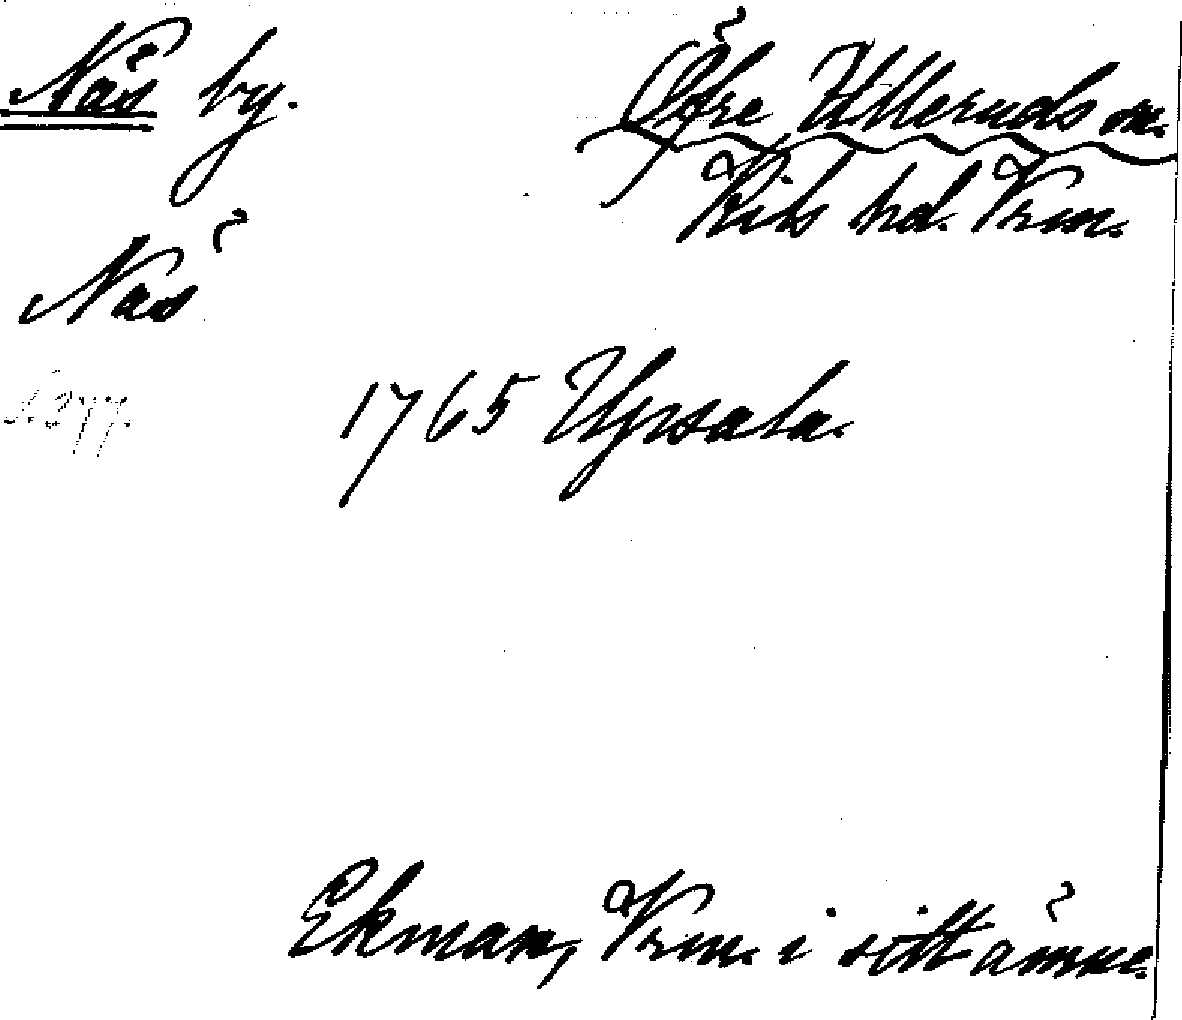 Näs by.
Öfre Ulleruds sn.
Kils hd. Vrm.
Näs
1765 Upsala.
Ekman, Vrm. i sitt ämne.